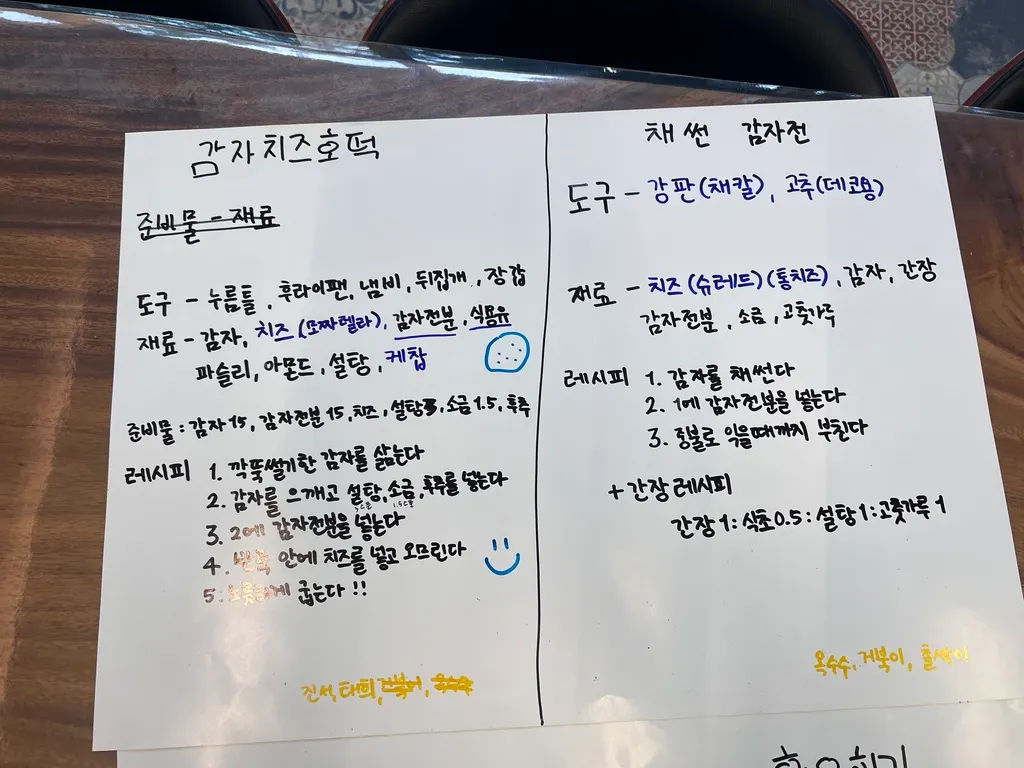 감자치즈호떡
준비물 - 재료
도구 - 누름틀, 후라이팬, 냄비, 뒤집개, 장갑
재료 - 감자, 치즈(모짜렐라), 감자전분, 식용유
파슬리, 아몬드, 설탕, 케찹
준비물 : 감자15, 감자전분15, 치즈, 설탕3, 소금1.5, 후추
레시피 1. 깍뚝썰기한 감자를 삶는다
2. 감자를 으깨고 설탕, 소금, 후추를 넣는다
3. 2에 감자전분을 넣는다
4. 반죽 안에 치즈를 넣고 오므린다
5. 노릇하게 굽는다 !!
진서, 태희, 거북이, 옥수수
채썬 감자전
도구 - 강판(채칼), 고추(데코용)
재료 - 치즈(슈레드)(통치즈), 감자, 간장
감자전분, 소금, 고춧가루
레시피 1. 감자를 채썬다
2. 1에 감자전분을 넣는다
3. 중불로 익을때까지 부친다
+ 간장 레시피
간장1 : 식초0.5 : 설탕1 : 고춧가루 1
옥수수, 거북이,